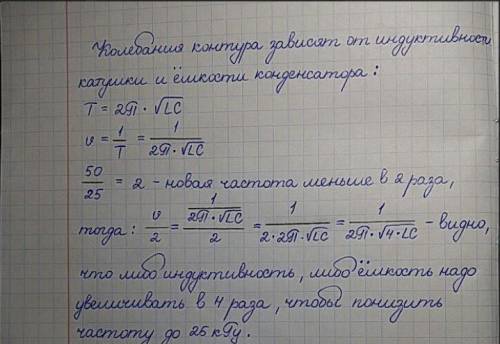 Колебания контура зависят от индуктивности
катушки и ёмкости конденсатора:
T = 2П · √LC
υ = 1/T = 1/(2П · √LC)
50/25 = 2 - новая частота меньше в 2 раза,
тогда: υ/2 = (1/(2П · √LC))/2 = 1/(2·2П·√LC) = 1/(2П · √4·LC) - видно,
что либо индуктивность, либо ёмкость надо
увеличивать в 4 раза, чтобы понизить
частоту до 25 кГц.